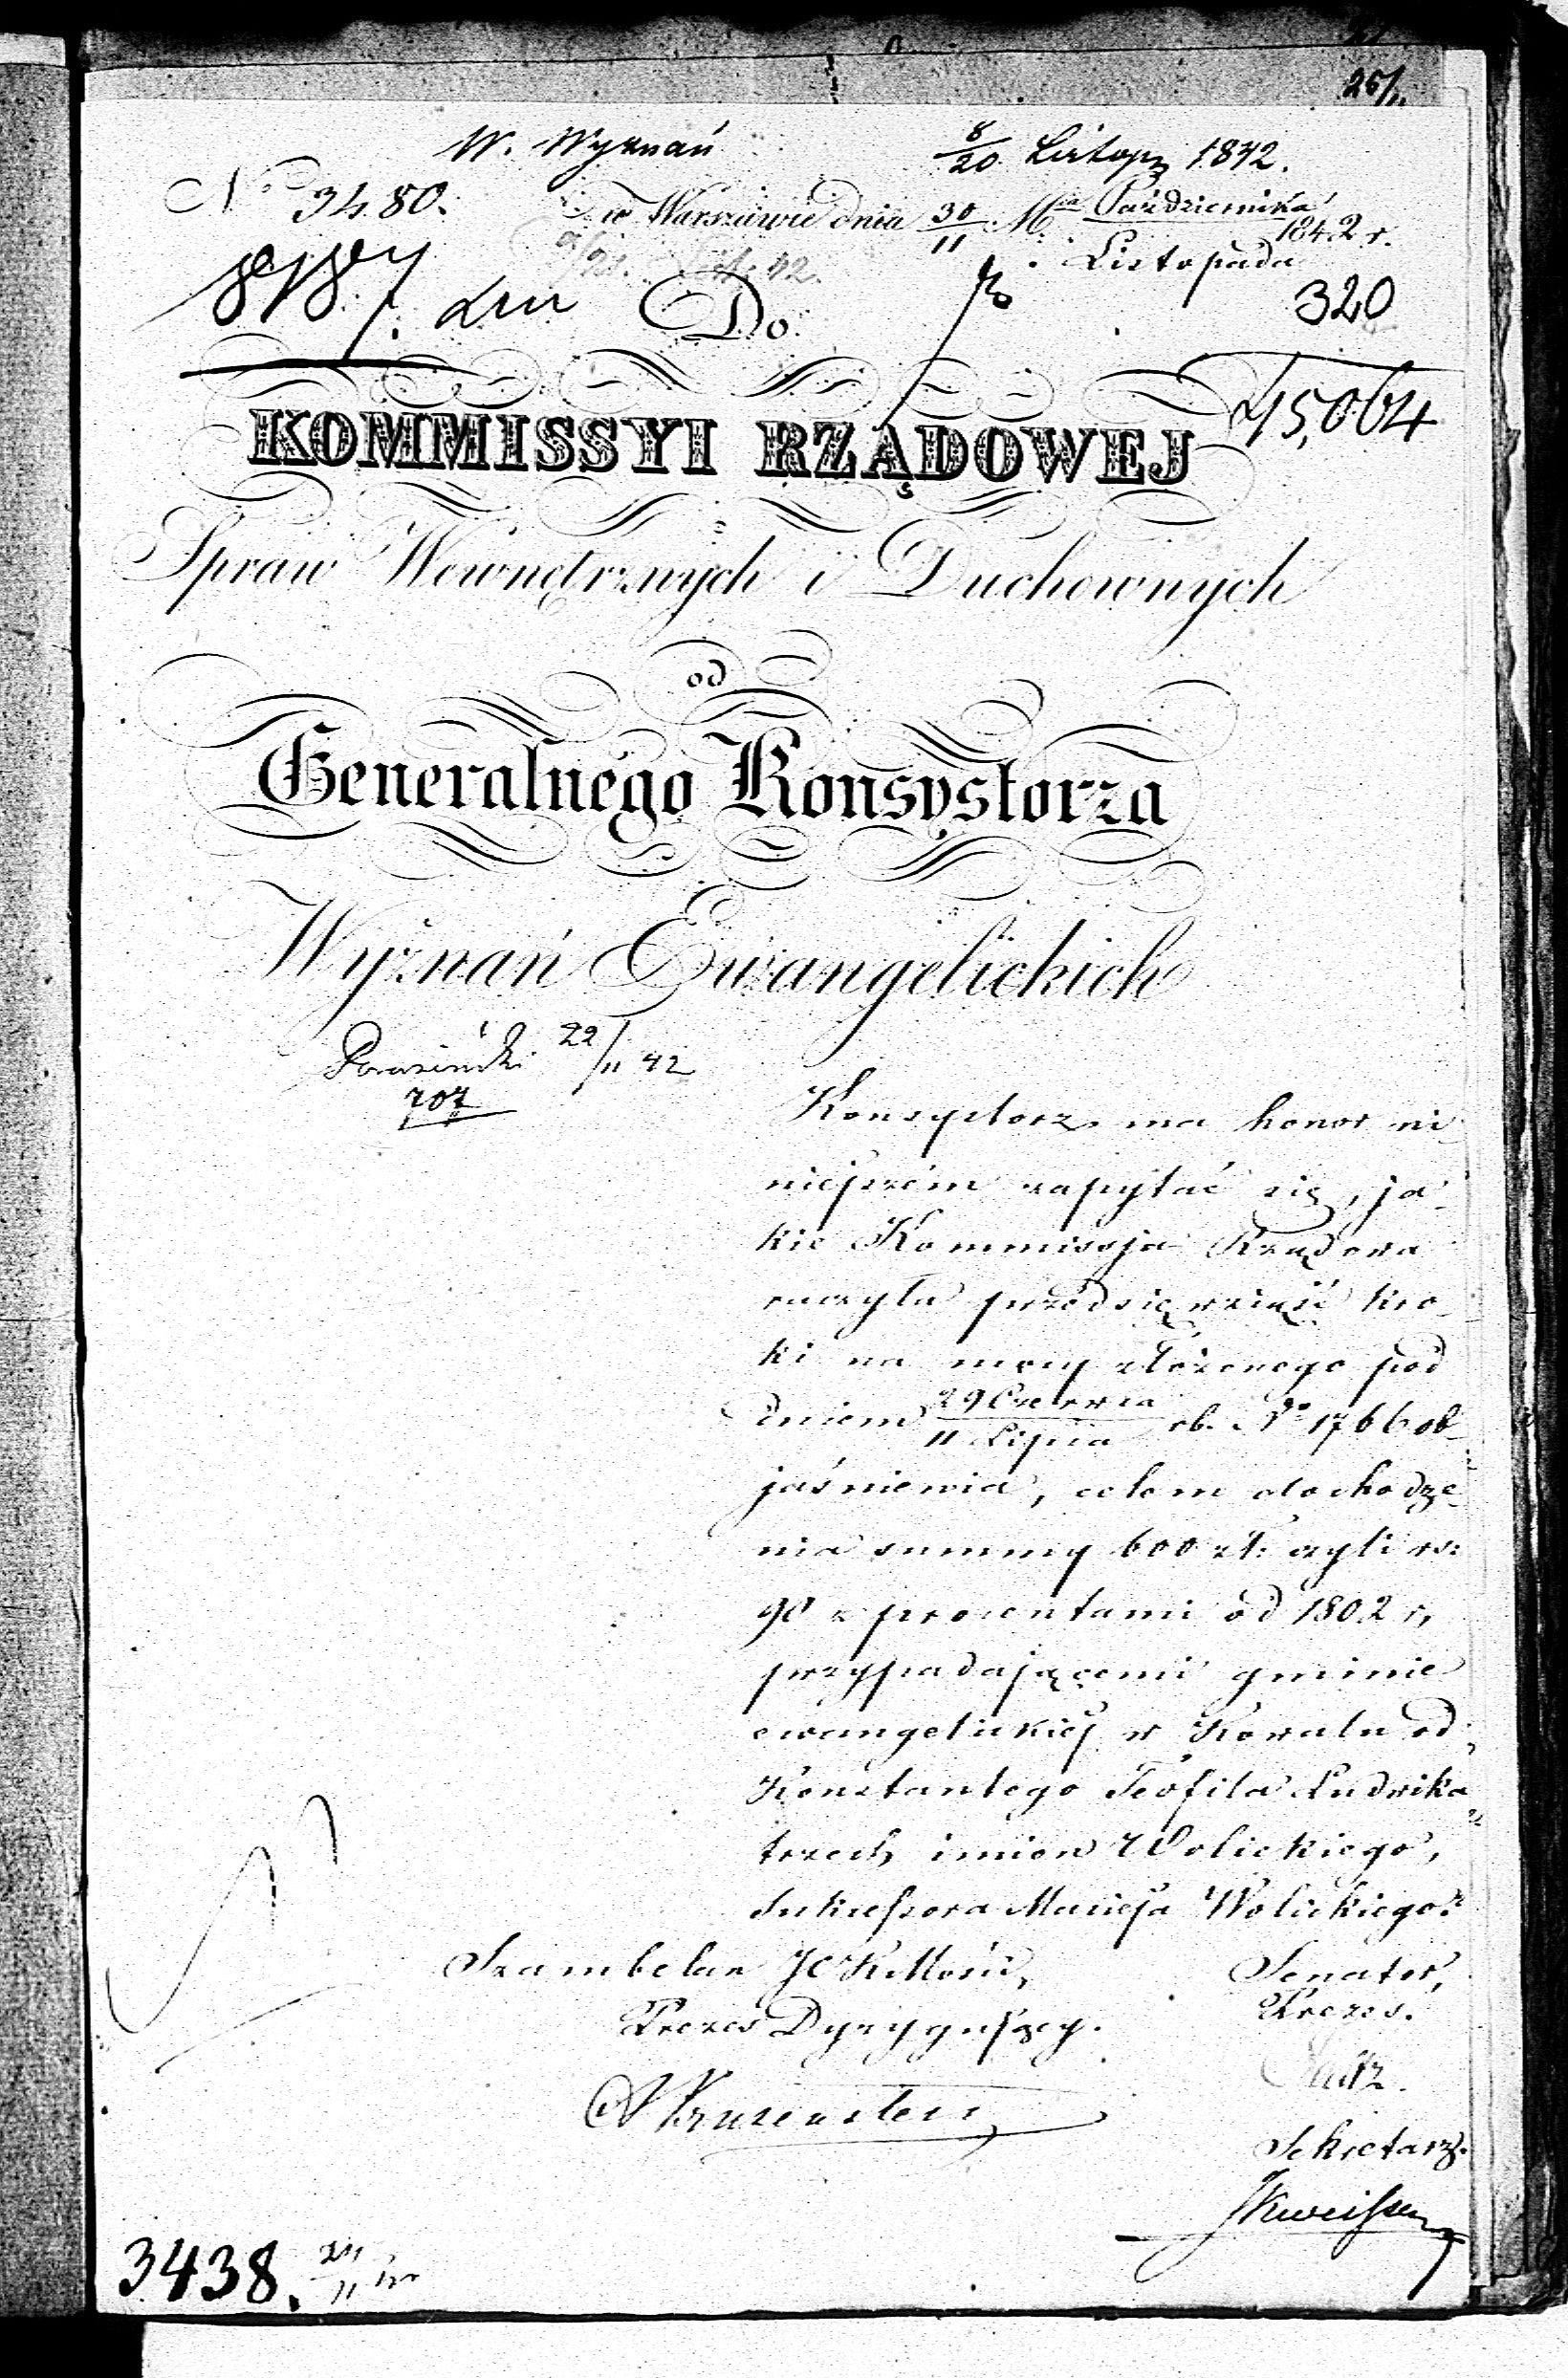 25/11
W. Wyznań
8/20 Listop 1842.
No 3480.
w Warszawie dnia 30/11 Mca Października/Listopada 1842 r.
Do
320
45,064
KOMMISSYI RZĄDOWEJ
Spraw Wewnętrznych i Duchownych
od
Generalnego Konsystorza
Wyznań Ewangelickich
22/11 42
707
Konsystorz ma honor ni-
niejszém zapytać się, ja-
kie Kommissja Rządowa
raczyła przedsięwziąść kro-
ki na mocy złożonego pod
dniem 29 Czerwca/11 Lipca rb. No 1766 ob-
jaśnienia, celem dochodze-
nia summy 600 zł: czyli rs:
90 z procentami od 1802 r,
przypadającemi gminie
ewangelickiej w Kowalu od
Konstantego Teofila Ludwika
trzech imion Wolickiego,
Sukcessora Macieja Wolickiego.
Szambelan JCKMości,
Prezes Dyrygujący.
Senator,
Prezes.
Sekretarz.
3438.